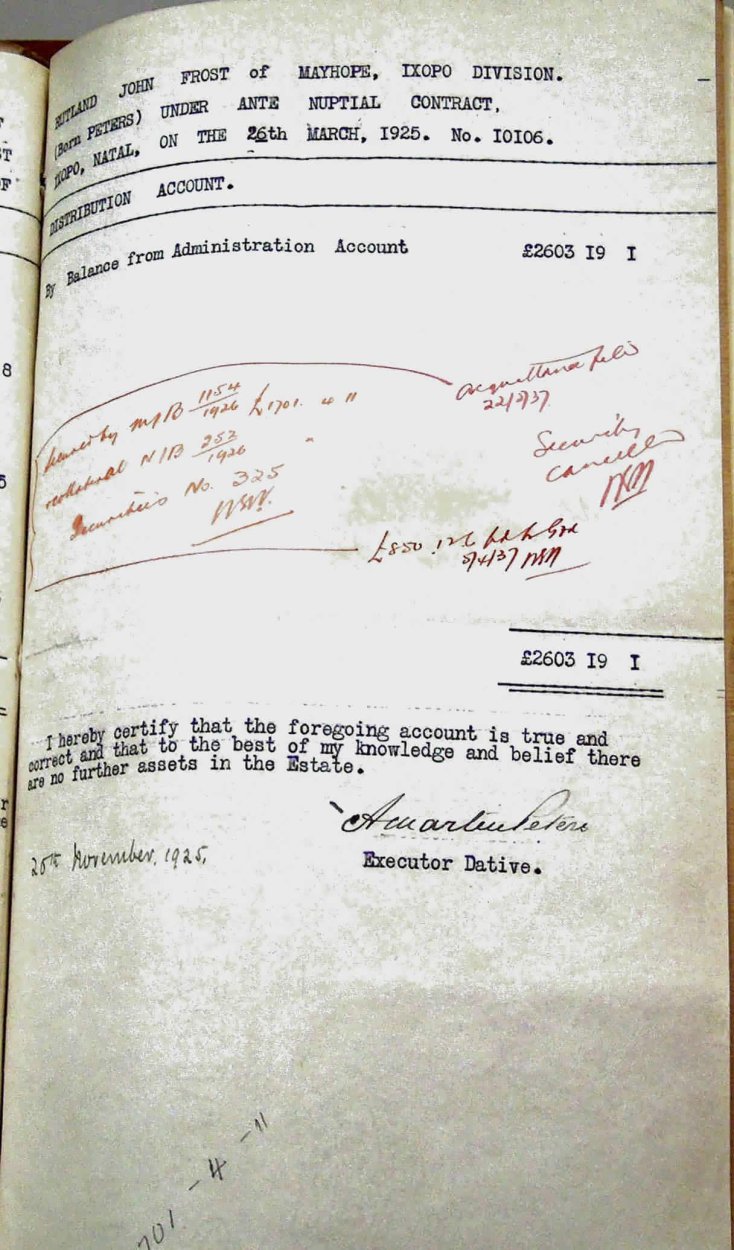 RUTLAND JOHN FROST of MAYHOPE, IXOPO DIVISION.
(Born PETERS) UNDER ANTE NUPTIAL CONTRACT,
IXOPO, NATAL, ON THE 26th MARCH, I925. No. I0I06.
DISTRIBUTION ACCOUNT.
By Balance from Administration Account £2603 I9 I
Secured by M/B 1154/1926 £1701. 4. 11
collateral N/B 252/1926 "
Securities No. 325
Acquittance filed
22/2/37
Security
cancelled
£850. 12.6
5/4/37
£2603 I9 I
I hereby certify that the foregoing account is true and
correct and that to the best of my knowledge and belief there
are no further assets in the Estate.
A Martin Peters
Executor Dative.
26th November, 1925.
701 - 4 - 11